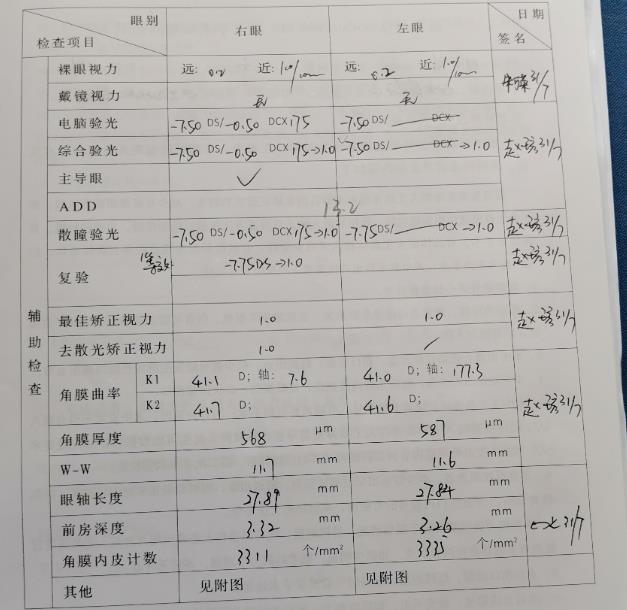 眼别 右眼 左眼 日期
检查项目 签名
辅助检查
裸眼视力 远: 0.2 近: 1.0/10cm 远: 0.2 近: 1.0/10cm 31/7
戴镜视力
电脑验光 -7.50 DS/-0.50 DCX175 -7.50 DS/ DCX
综合验光 -7.50 DS/-0.50 DCX175→1.0 -7.50 DS/ DCX →1.0 31/7
主导眼 ✓
ADD 13.2
散瞳验光 -7.50 DS/-0.50 DCX175→1.0 -7.75 DS/ DCX →1.0 31/7
复验 -7.75DS→1.0 31/7
最佳矫正视力 1.0 1.0 31/7
去散光矫正视力 1.0 /
角膜曲率 K1 41.1 D; 轴: 7.6 41.0 D; 轴: 177.3
K2 41.7 D; 41.6 D; 31/7
角膜厚度 568 μm 587 μm
W-W 11.7 mm 11.6 mm
眼轴长度 27.89 mm 27.84 mm
前房深度 3.32 mm 3.26 mm 31/7
角膜内皮计数 3311 个/mm² 3335 个/mm²
其他 见附图 见附图